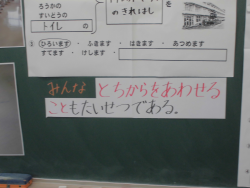 ろうかの
すいどうの
トイレ の
のきれはし
を
① ひろいます ・ ふきます ・ はきます ・ あつめます
すてます ・ けします ・
みんな とちからをあわせる
こともたいせつである。